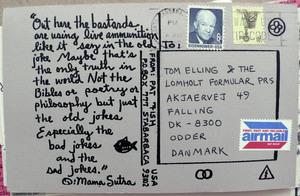 "Out here the bastards
are using live ammunition
like I say in the old
joke. Maybe that's
the only truth in
the world. Not the
Bibles or poetry or
philosophy but just
the old jokes
Especially the
bad jokes
and the
sad jokes."
©: Mama Sutra
FROM: PAT FISH
P.O. BOX
STA BARBARA CA
93102
USA
TO:
EISENHOWER·USA
8c
TOM ELLING & THE
LOMHOLT FORMULAR PRS
AKJAERVEJ 49
FALLING
DK-8300
ODDER
DANMARK
airmail